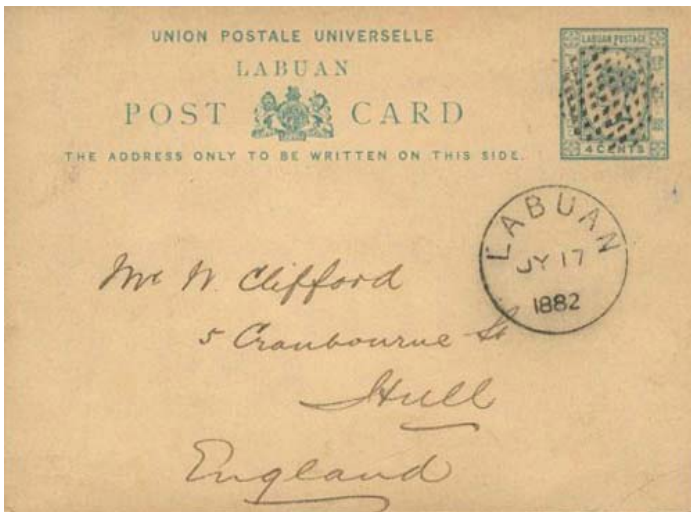 UNION POSTALE UNIVERSELLE
LABUAN
POST CARD
THE ADDRESS ONLY TO BE WRITTEN ON THIS SIDE.
LABUAN POSTAGE
4 CENTS
LABUAN
JY 17
1882
Mr W. Clifford
5 Cranbourne St
Hull
England